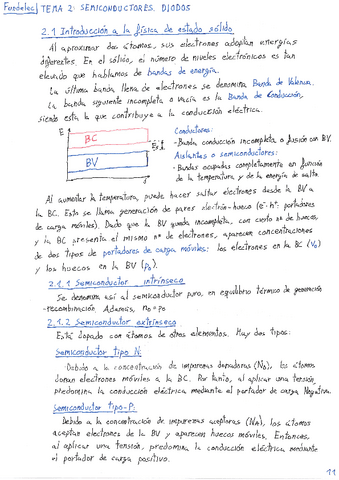 Fundelec/ TEMA 2: SEMICONDUCTORES. DIODOS
2.1 Introducción a la física de estado sólido
Al aproximar dos átomos, sus electrones adoptan energías
diferentes. En el sólido, el número de niveles electrónicos es tan
elevado que hablamos de bandas de energía.
La última banda llena de electrones se denomina Banda de Valencia.
La banda siguiente incompleta o vacía es la Banda de Conducción,
siendo esta la que contribuye a la conducción eléctrica.
E
BC
BV
Conductores:
- Banda conducción incompleta o fusión con BV.
Aislantes o semiconductores:
- Bandas ocupadas completamente en función
de la temperatura y de la energía de salto.
Al aumentar la temperatura, puede hacer saltar electrones desde la BV a
la BC. Esto se llama generación de pares electrón-hueco (e⁻-h⁺: portadores
de carga móviles). Dado que la BV queda incompleta, con cierto nº de huecos,
y la BC presenta el mismo nº de electrones, aparecen concentraciones
de dos tipos de portadores de carga móviles: los electrones en la BC
y los huecos en la BV (p₀).
2.1.1 Semiconductor intrínseco
Se denomina así al semiconductor puro, en equilibrio térmico de generación
-recombinación. Además, n₀=p₀
2.1.2 Semiconductor extrínseco
Está dopado con átomos de otros elementos. Hay dos tipos:
Semiconductor tipo N:
Debido a la concentración de impurezas donadoras (N_D), los átomos
donan electrones móviles a la BC. Por tanto, al aplicar una tensión,
predomina la conducción eléctrica mediante el portador de carga Negativa.
Semiconductor tipo-P:
Debido a la concentración de impurezas aceptoras (N_A), los átomos
aceptan electrones de la BV y aparecen huecos móviles. Entonces,
al aplicar una tensión, predomina la conducción eléctrica mediante
el portador de carga positivo.